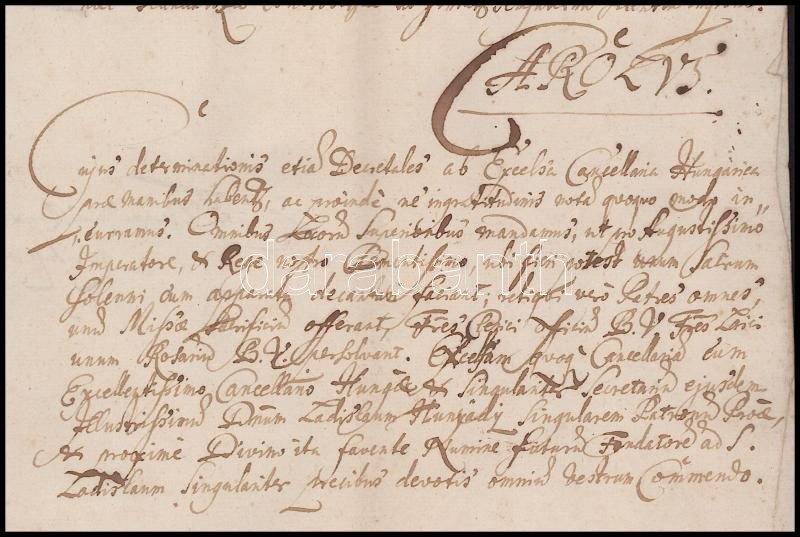 CAROLVS.
Cujus determinationis etiã Decretales ab Excelsa Cancellaria Hungarica
præ manibus habent, ac proinde ne ingratitudinis notã quoquo modo in,,
,,curramus. Omnibus Locorũ Superioribus mandamus, ut pro Augustissimo
Imperatore, & Rege nostro Clementissimo, ubi fieri potest unum Sacrum
solenni cum apparatu decantari faciant; reliqui verò Patres omnes,
unũ Missæ Sacrificiũ offerant, Frẽs Clerici officiũ B. V. Frẽs Laici
unum Rosariũ B. V. persolvant. Excelsam quoq Cancellariã cum
Excellentissimo Cancellario Hungæ & Singulariter Secretariũ ejusdem
Illustrissimũ Dnum Ladislaum Hunyady Singularem Patronũ Proæ,
& proxime Divino ita favente Numine futurũ Fundatorẽ ad S.
Ladislaum singulariter precibus devotis omniũ vestrum Commendo.
darabanth